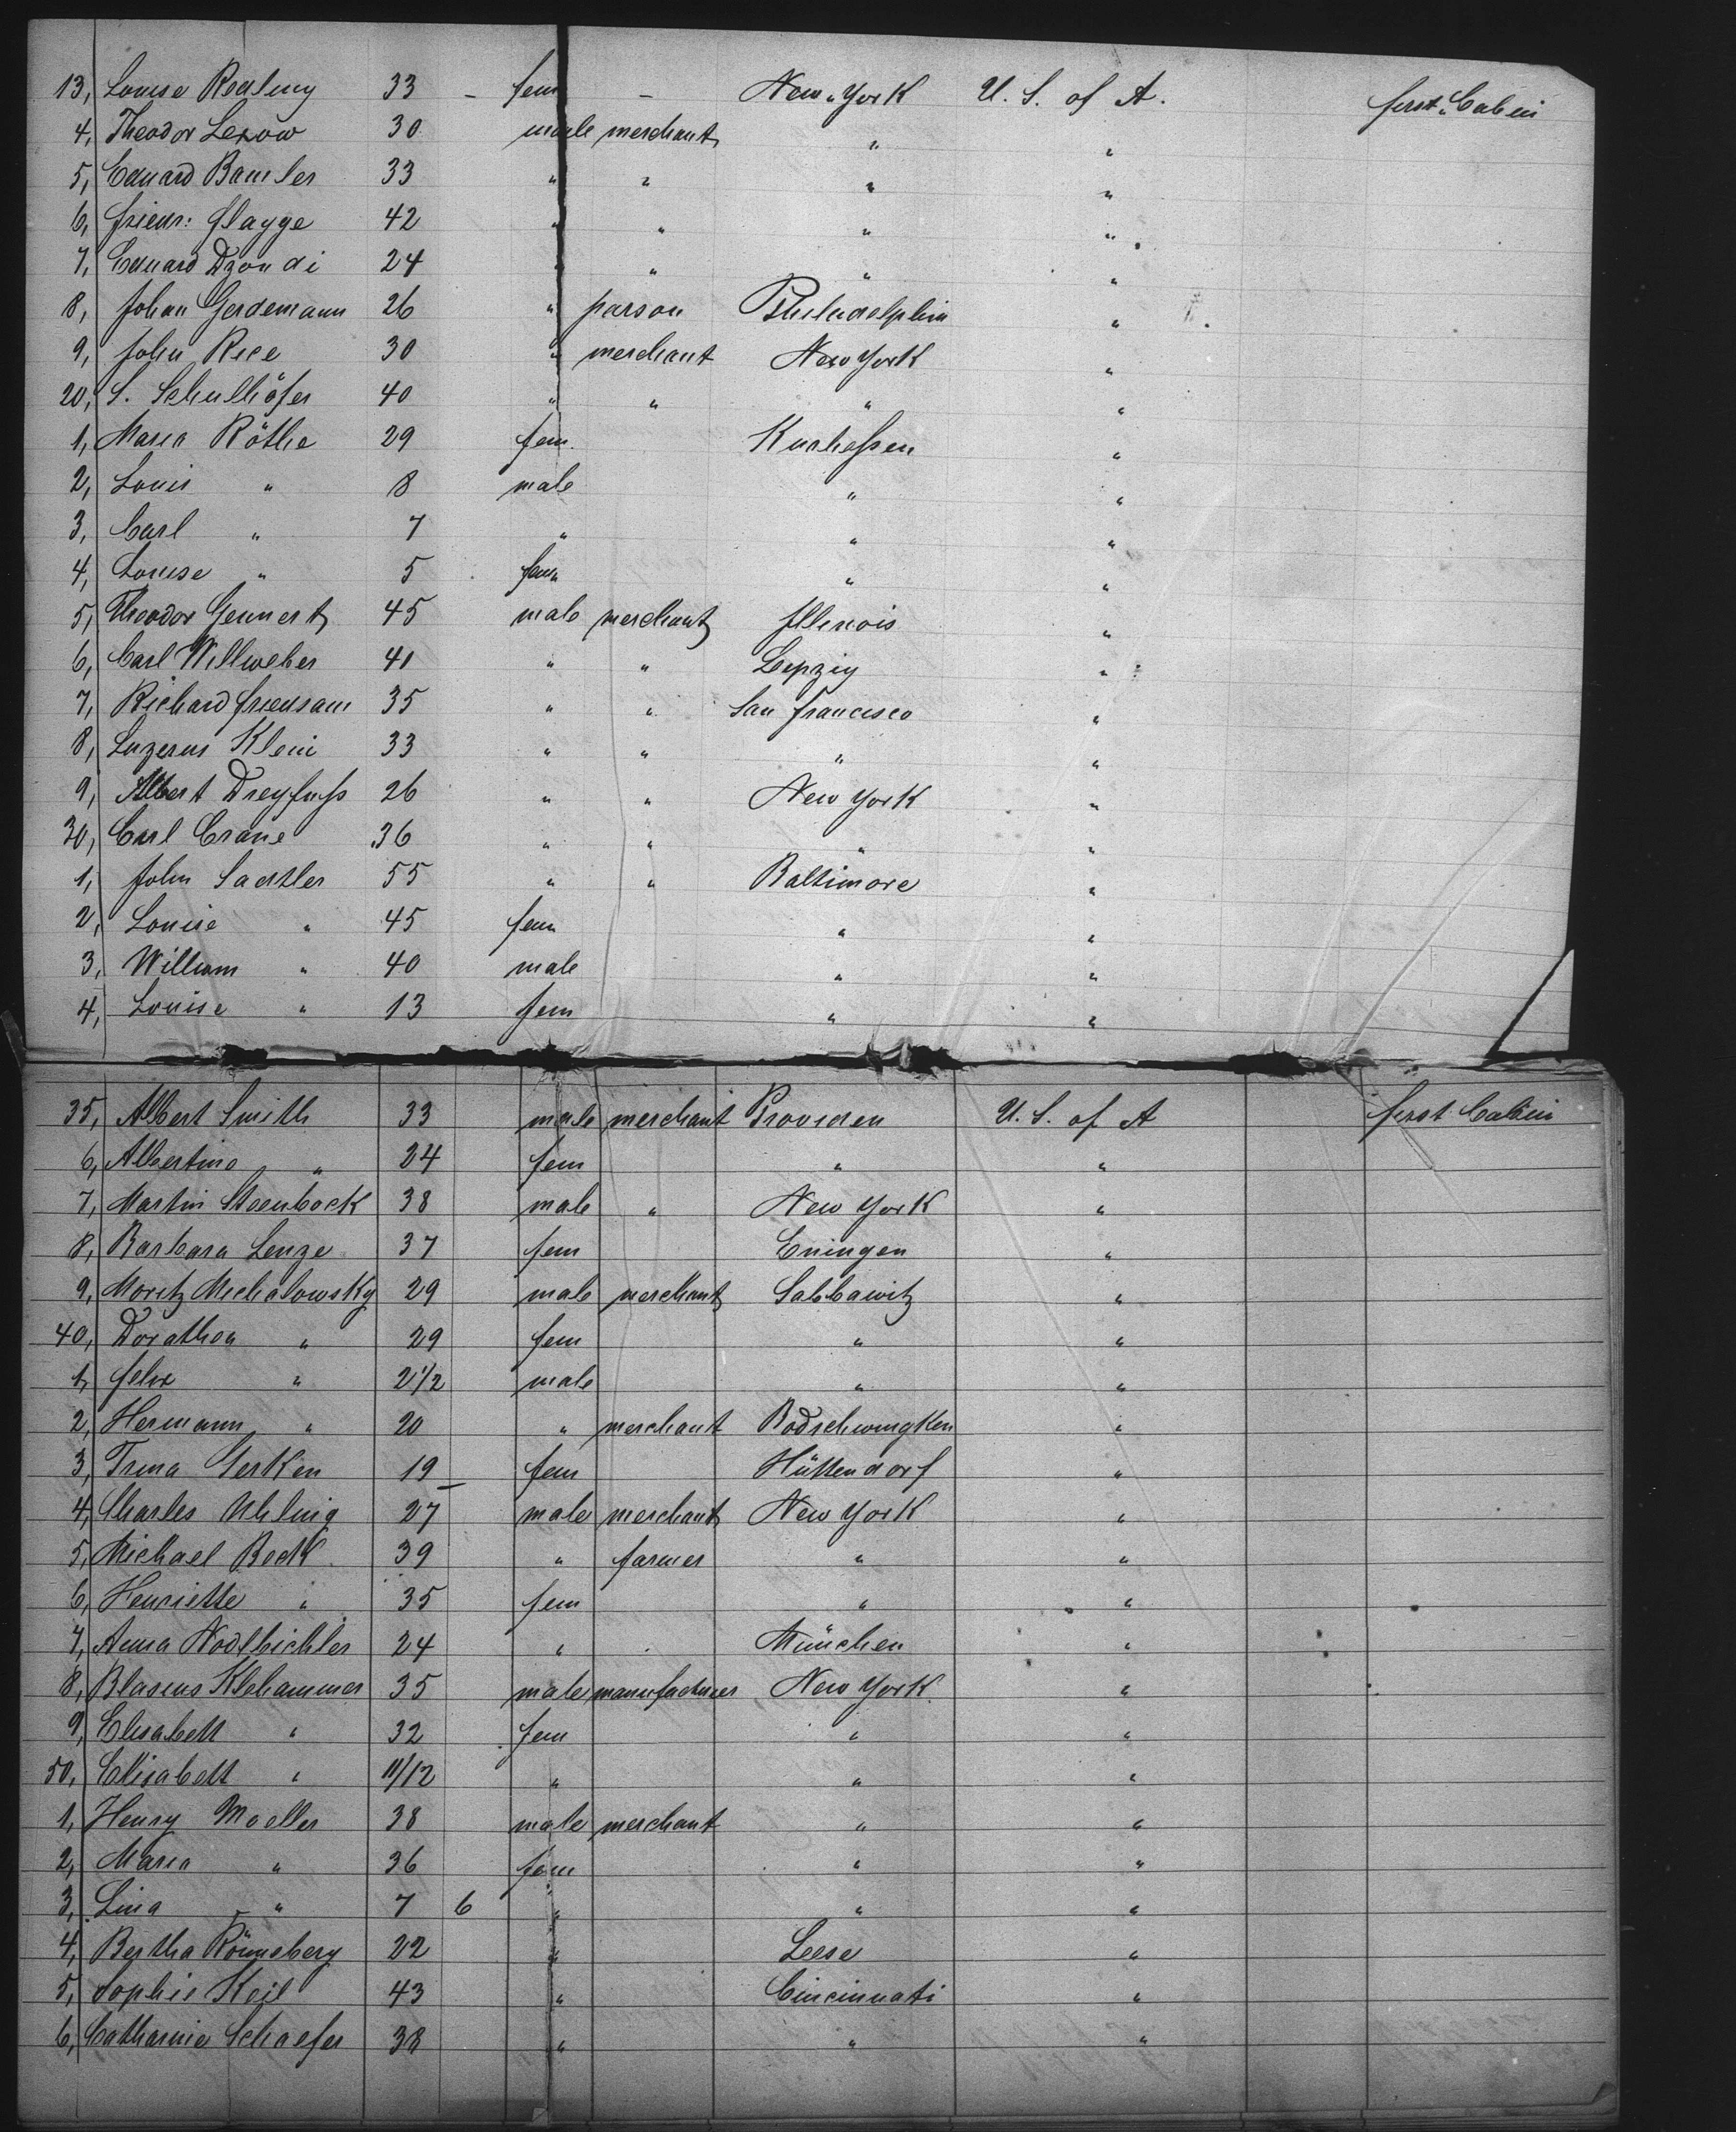 13, Louise Realung 33 – fem – New-York U. S. of A. first Cabin
4, Theodor Lexow 30 male merchant " "
5, Eduard Bamler 33 " " " "
6, Friedr: Flagge 42 " " " "
7, Eduard Dzondi 24 " " " "
8, Johan Gerdemann 26 " parson Philadelphia "
9, John Rice 30 " merchant New York "
20, S. Schullhöfer 40 " " " "
1, Maria Röthe 29 fem. Kurhessen "
2, Louis " 8 male " "
3, Carl " 7 " " "
4, Louise " 5 fem " "
5, Theodor Gennert 45 male merchant Illinois "
6, Carl Willweber 41 " " Leipzig "
7, Richard Freensam 35 " " San Francisco "
8, Lazerus Klein 33 " " " "
9, Albert Dreyfuss 26 " " New York "
30, Carl Crane 36 " " " "
1, John Sadtler 55 " " Baltimore "
2, Louise " 45 fem " "
3, William " 40 male " "
4, Louise " 13 fem " "
35, Albert Smith 33 male merchant Providen U. S. of A first Cabin
6, Albertine " 24 fem " "
7, Martin Steenbock 38 male " New York "
8, Barbara Lenze 37 fem Eningen "
9, Moritz Michalowsky 29 male merchant Sabbawitz "
40, Dorathea " 29 fem " "
1, Felix " 2 1/2 male " "
2, Hermann " 20 " merchant Bodschwingken "
3, Trina Gerken 19 fem Hüttendorf "
4, Charles Uhling 27 male merchant New York "
5, Michael Beck 39 " farmer " "
6, Henriette " 35 fem " "
7, Anna Nodlbichler 24 " München "
8, Blasius Klehammer 35 male manufacturer New York "
9, Elisabett " 32 fem " "
50, Elisabett " 11/12 " " "
1, Henry Moeller 38 male merchant " "
2, Maria " 36 fem " "
3, Lina " 7 6 " " "
4, Bertha Rönneberg 22 " Leese "
5, Sophie Keil 43 " Cincinnati "
6, Catharine Schaefer 38 " " "